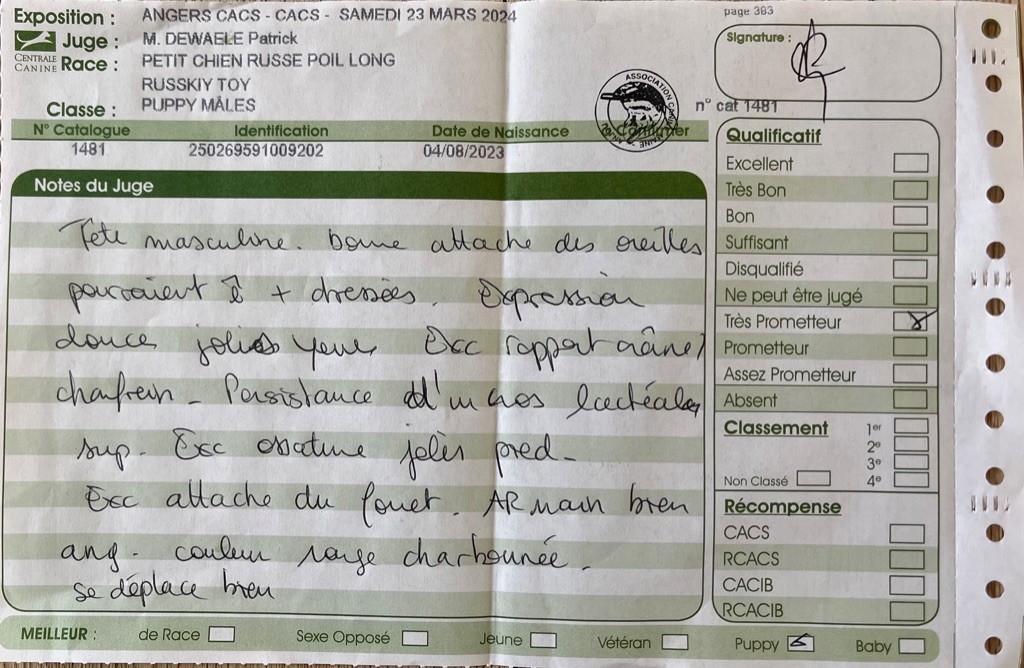 Exposition : ANGERS CACS - CACS - SAMEDI 23 MARS 2024
page 383
Juge : M. DEWAELE Patrick
Signature :
CENTRALE CANINE
Race : PETIT CHIEN RUSSE POIL LONG
RUSSKIY TOY
Classe : PUPPY MÂLES
ASSOCIATION
n° cat 1481
N° Catalogue Identification Date de Naissance Confirmer
1481 250269591009202 04/08/2023
Notes du Juge
Tête masculine. bonne attache des oreilles
pourraient ê + dressées. Expression
douce jolies yeux Exc rapport crâne/
chanfrein - Persistance d'incros lactéales
sup. Exc ossature jolis pied -
Exc attache du fouet. AR main bien
ang - couleur rouge charbonnée.
se déplace bien
Qualificatif
Excellent
Très Bon
Bon
Suffisant
Disqualifié
Ne peut être jugé
Très Prometteur
Prometteur
Assez Prometteur
Absent
Classement 1er
2e
3e
Non Classé 4e
Récompense
CACS
RCACS
CACIB
RCACIB
MEILLEUR : de Race Sexe Opposé Jeune Vétéran Puppy Baby